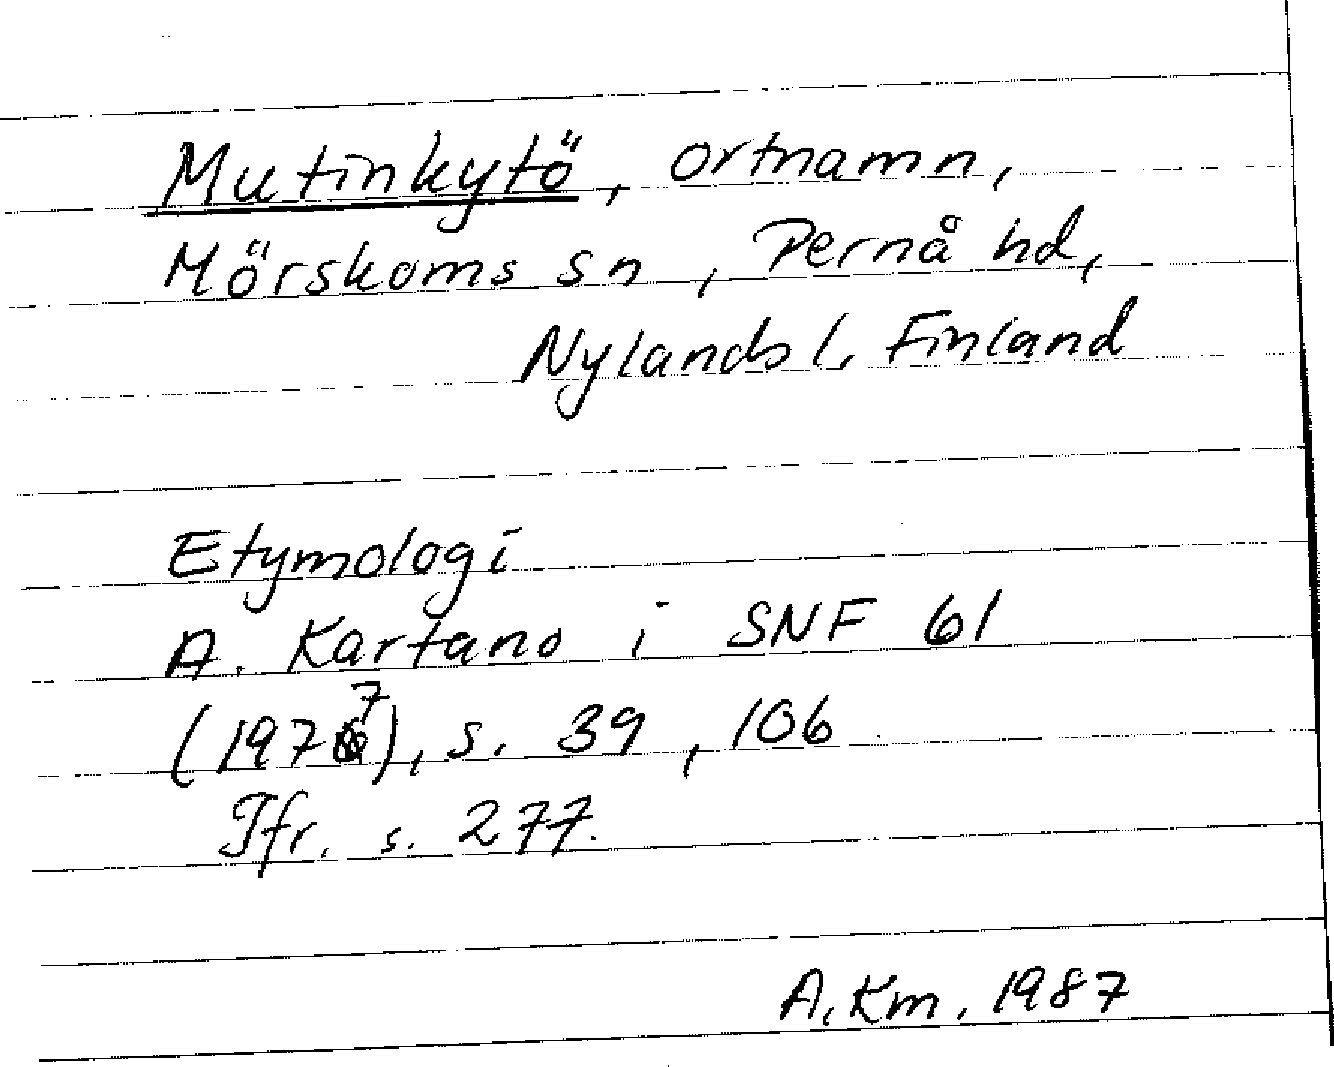 Mutinkytö, ortnamn,
Mörskoms sn, Pernå hd,
Nylands l, Finland
Etymologi
A. Kartano i SNF 61
(1977), s. 39, 106
Jfr. s. 277.
A. Km. 1987